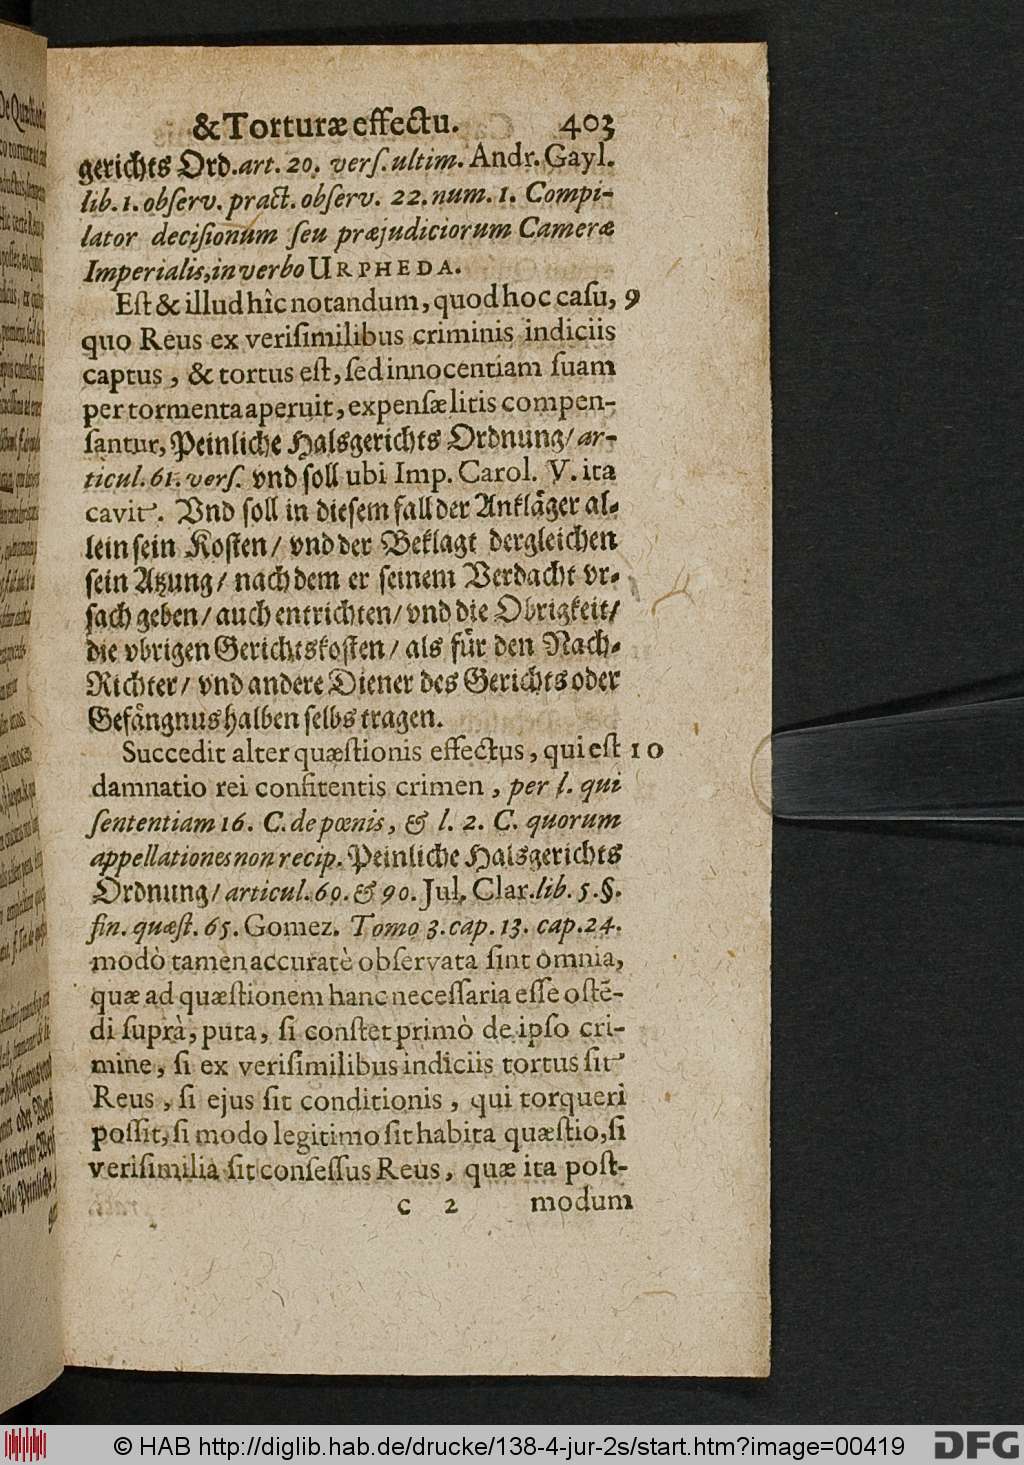 & Torturæ effectu. 403
gerichts Ord. art. 20. verſ. ultim. Andr. Gayl.
lib. 1. obſerv. pract. obſerv. 22. num. 1. Compi-
lator deciſionum ſeu præjudiciorum Cameræ
Imperialis, in verbo URPHEDA.
Eſt & illud hîc notandum, quod hoc caſu, 9
quo Reus ex veriſimilibus criminis indiciis
captus, & tortus eſt, ſed innocentiam ſuam
per tormenta aperuit, expenſæ litis compen-
ſantur, Peinliche Halsgerichts Ordnung/ ar-
ticul. 61. verſ. vnd ſoll ubi Imp. Carol. V. ita
cavit. Vnd ſoll in dieſem fall der Ankläger al-
lein ſein Koſten/ vnd der Beklagt dergleichen
ſein Atzung/ nach dem er ſeinem Verdacht vr-
ſach geben/ auch entrichten/ vnd die Obrigkeit/
die vbrigen Gerichtskoſten/ als für den Nach-
Richter/ vnd andere Diener des Gerichts oder
Gefängnus halben ſelbs tragen.
Succedit alter quæſtionis effectus, qui eſt 10
damnatio rei confitentis crimen, per l. qui
ſententiam 16. C. de pœnis, & l. 2. C. quorum
appellationes non recip. Peinliche Halsgerichts
Ordnung/ articul. 60. & 90. Jul. Clar. lib. 5. §.
fin. quæſt. 65. Gomez. Tomo 3. cap. 13. cap. 24.
modò tamen accuratè obſervata ſint omnia,
quæ ad quæſtionem hanc neceſſaria eſſe oſtẽ-
di ſuprà, puta, ſi conſtet primò de ipſo cri-
mine, ſi ex veriſimilibus indiciis tortus ſit
Reus, ſi ejus ſit conditionis, qui torqueri
poſſit, ſi modo legitimo ſit habita quæſtio, ſi
veriſimilia ſit confeſſus Reus, quæ ita poſt-
c 2 modum
© HAB http://diglib.hab.de/drucke/138-4-jur-2s/start.htm?image=00419
DFG